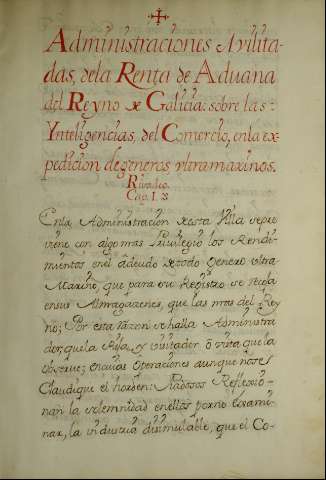 Administraciones Avilita-
das, dela Renta de Aduana
del Reyno de Galicia: sobre las
Ynteligencias, del Comercio, en la ex-
pedicion de generos ultramarinos.
Rivadeo.
Cap. I.
Enla Administración de esta Villa se pre
viene con algo mas Privilegio los Rendi-
mientos en el adeudo de todo Genero ultra
Marino, que para su Registro se recoja
ensus Almagazenes, que las mas del Rey
no; Por esta razon se halla Administra
dor, que la Rija, y visitador ó vista, que la
observe; encuias operaciones aunque no se
Claudique el horden: Piadosas Reflessio-
nan la solemnidad en ellas por no exsami-
nar, la industria disimulable, que el Co-